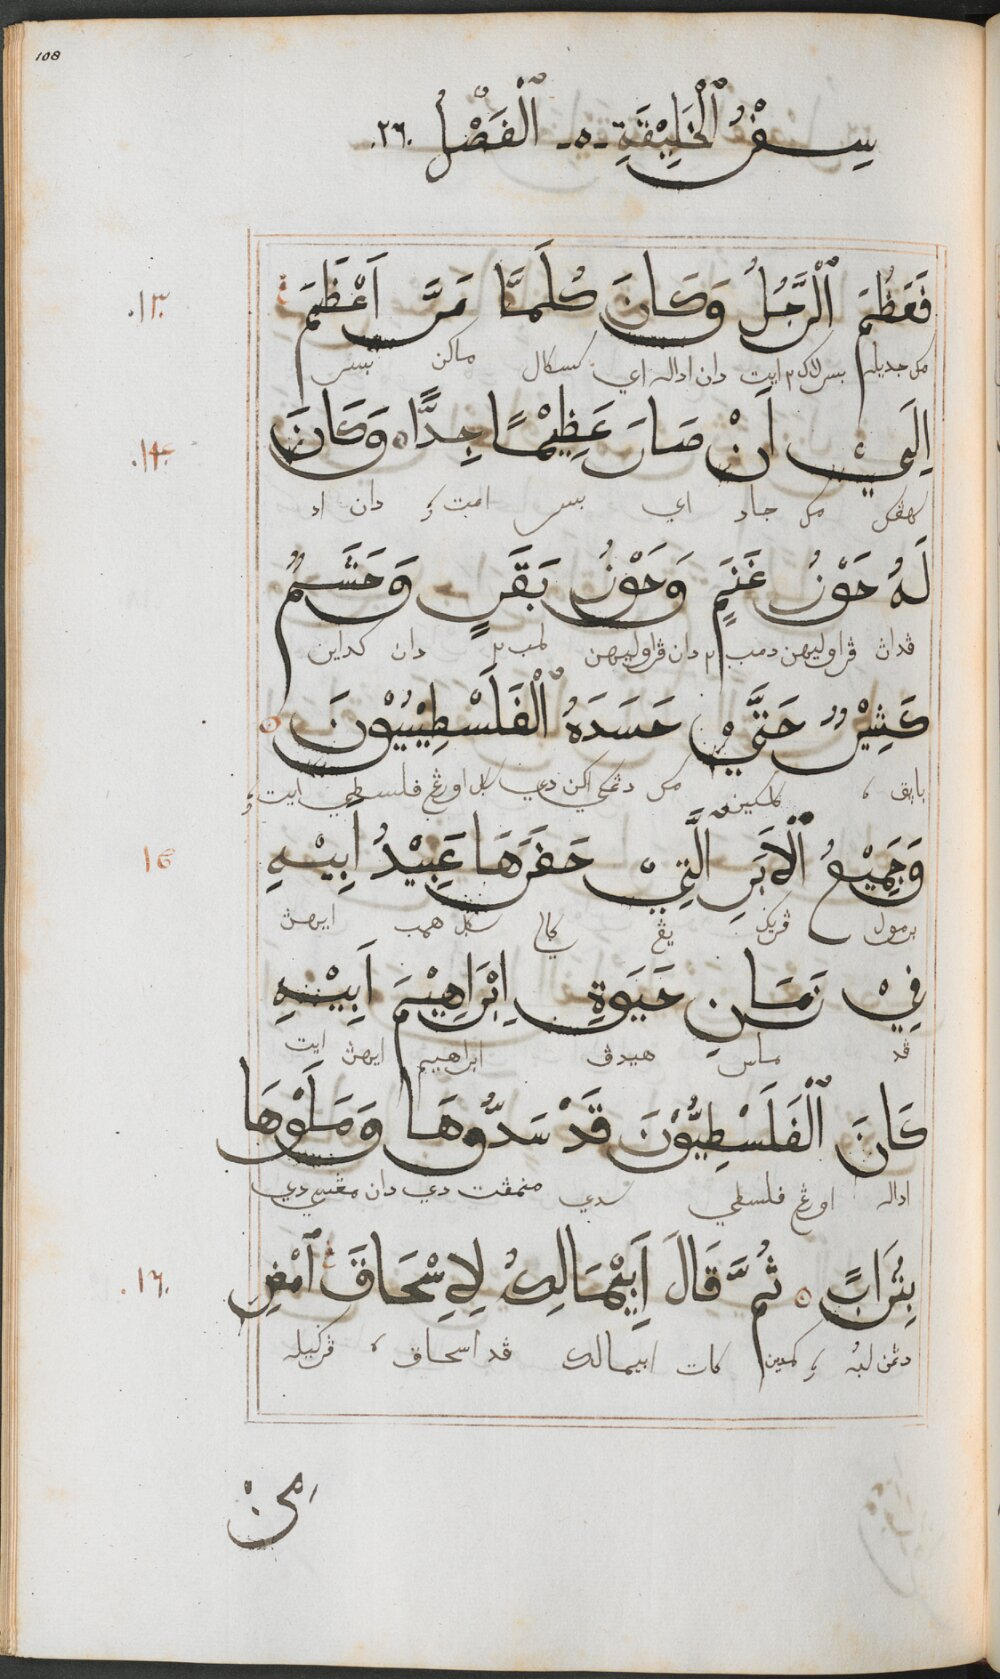 108
سِفْرُ ٱلْخَلِيْقَةِ -٥- ٱلْفَصْلُ .٢٦.
.١٣.
فَعَظُمَ ٱلْرَّجُلُ وَكَانَ كُلَّمَا مَرَّ اَعْظَمَ
مک جديله بسر لاک٢ ايت دان اداله اي سکال ماکن بسر
.١۴.
اِلَيْ اَنْ صَارَ عَظِيْمًا جِدًّا وَكَانَ
مک جاد اي بسر امت دان اد
لَهُ حَوْنُ غَنَمٍ وَحَوْنُ بَقَرٍ وَحَشَمٌ
ڤداث ڤراوليهن دمب٢ دان ڤراوليهن لمب٢ دان
كَثِيْرٌ حَتَّيْ حَسَدَهُ ٱلْفَلَسْطِيْيُوْنَ
باڽق مک دڠکيکن دي سکل اورڠ فلسطي ايت
١٥
وَجَمِيْعُ ٱلْاَبَرِ الَّتِيْ حَفَرَهَا عَبِيْدُ اَبِيْهِ
برمول ڤريک يڠ کالي سکل همب ايهڽ
فِيْ زَمَانِ حَيَوةِ اِبْرَاهِيْمَ اَبِيْهِ
ڤد ماس هيدڤ ابراهيم ايهڽ ايت
كَانَ ٱلْفَلَسْطِيُّوْنَ قَدْ سَدُّوْهَا وَمَلَوْهَا
اداله اورڠ فلسطي سدي منمڤت دي دان مڠيسي دي
.١٦.
بِتُرَابٍ ثُمَّ قَالَ اَبِيْمَالِكُ لِاِسْحَاقَ ٱمْضِ
دڠن لبه کمدين کات ابيمالک ڤد اسحاق ڤرکيله